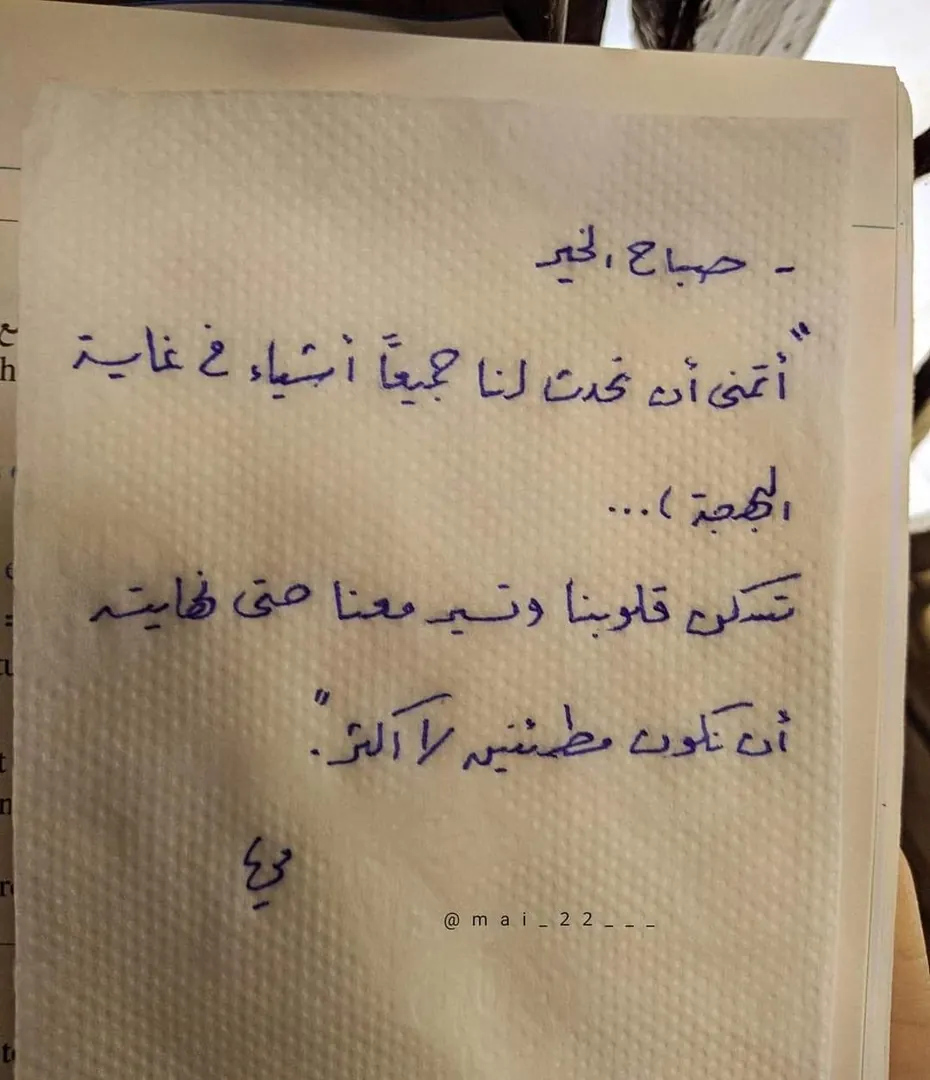 - صباح الخير
"أتمنى أن تحدث لنا جميعاً أشياء في غاية
البهجة )...
تسكن قلوبنا وتسير معنا حتى نهايته
أن نكون مطمئنين لا أكثر."
مي
@mai_22___